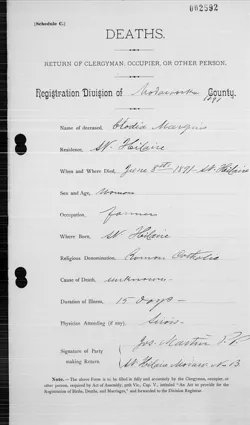 002592
(Schedule C.)
DEATHS.
RETURN OF CLERGYMAN, OCCUPIER, OR OTHER PERSON.
Registration Division of Madawaska County.
1891
Name of deceased, Clodia
Residence, St. Hilaire
When and Where Died, June 8th 1891 St. Hilaire
Sex and Age, Woman
Occupation, farmer
Where Born, St. Hilaire
Religious Denomination, Roman Catholic
Cause of Death, unknown
Duration of Illness, 15 days
Physician Attending (if any),
Signature of Party making Return. Jos. Martin
St Hilaire N.B
NOTE.—The above Form is to be filled in fully and accurately by the Clergyman, occupier, or
other person, required by Act of Assembly, 50th Vic., Cap. V., intituled "An Act to provide for the
Registration of Births, Deaths, and Marriages," and forwarded to the Division Registrar.